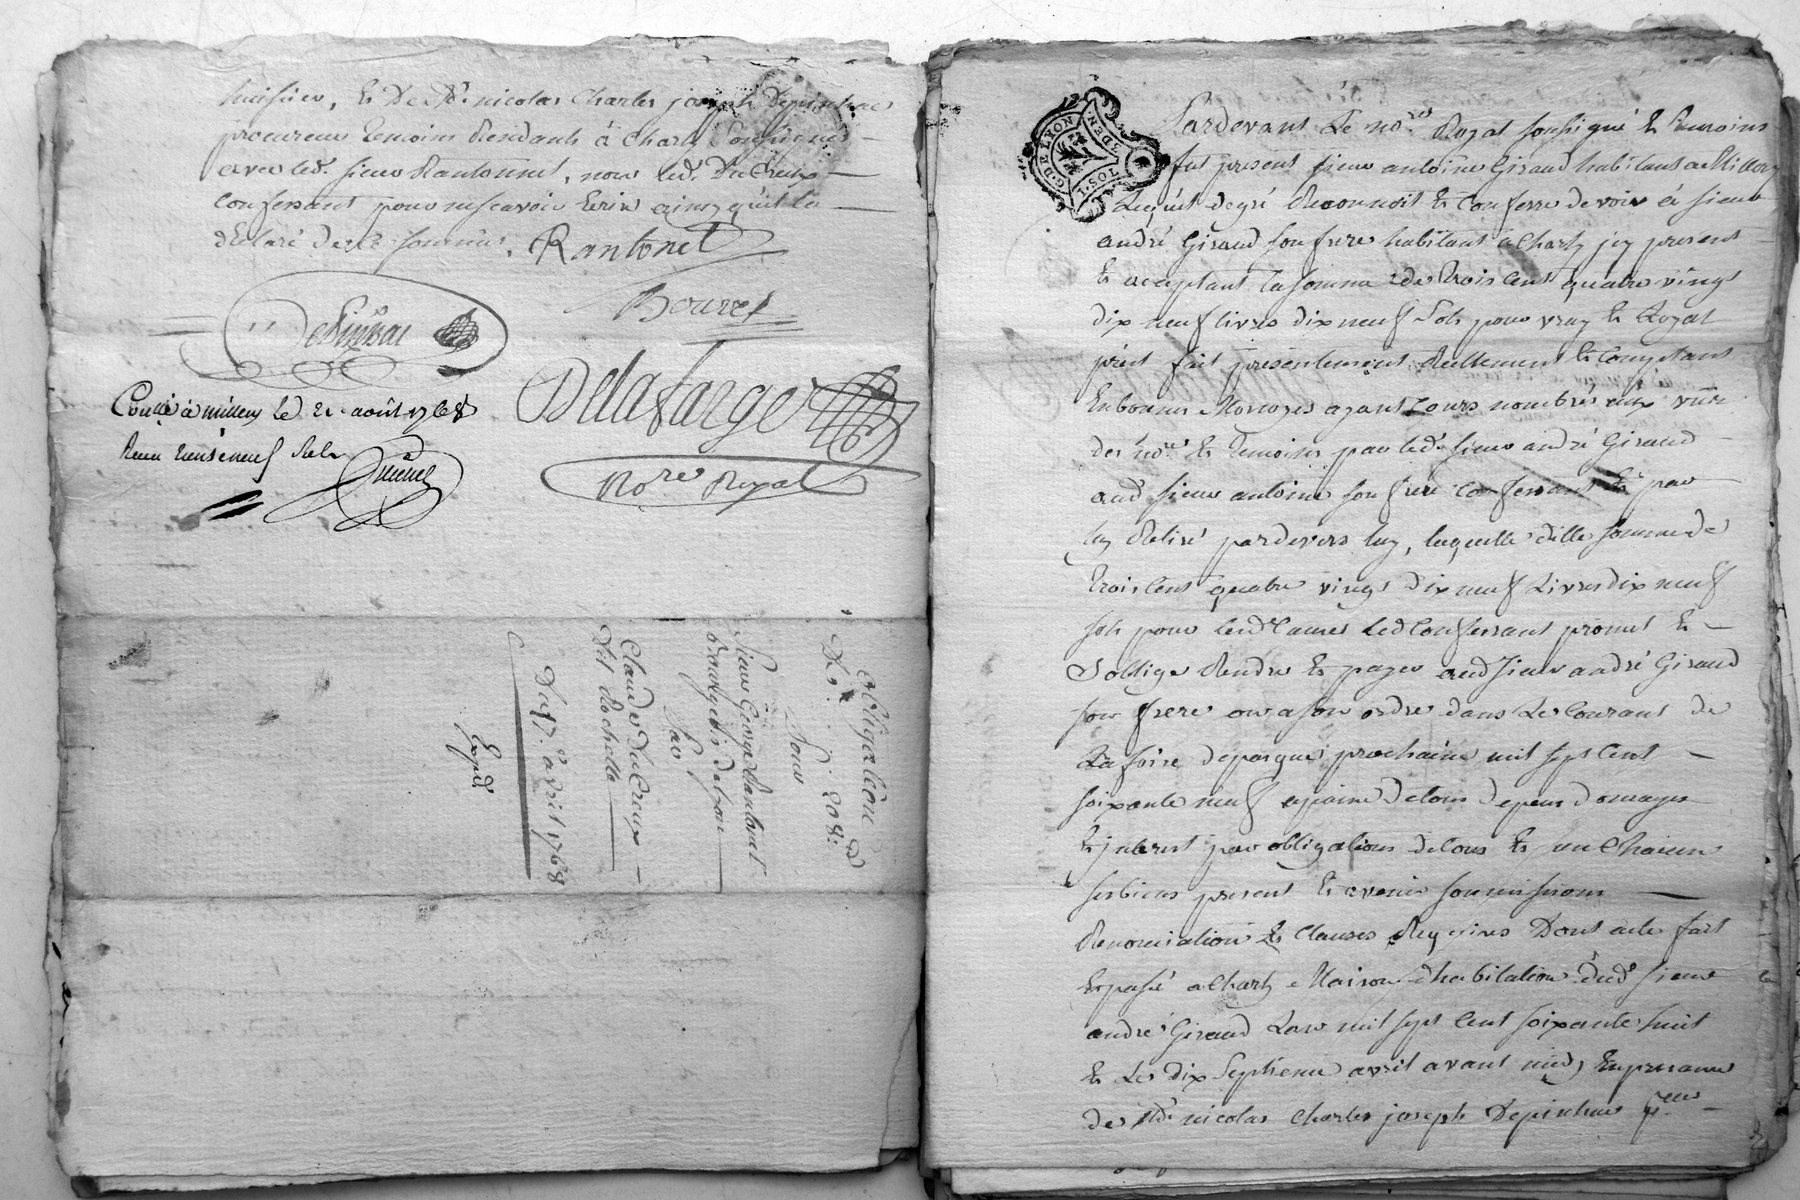 huissier, Et De Me. nicolas Charles joseph Depinhac
procureur temoins Rendants à Charly soussignés
avec led. sieur Rantonnet, non led. Du Creux
Confessant pour ne scavoir Ecrire ainsy qu'il la
declaré de ce sommé. Rantonet
Bouret
Depinhac
Delafarge
Nore Royal
Conllé à millery le 21 août 1768
Reçu treize neuf sols
Obligation
De # 208 d
Pour
Sieur George Rantonet
Bourgeois de Lyon
Sur
Claude Du Creux
dit Rochette
Du 17e avril 1768
Expd
G. DE LYON
1. SOL
3. DEN.
Pardevant Le nore. Royal soussigné Et temoins
fut present sieur antoine Giraud habitant a Millery
Lequel de gré Reconnoit Et Confesse devoir à sieur
andré Giraud son frere habitant à Charly jcy present
Et acceptant la somme de trois Cent quatre vingt
dix neuf livres dix neuf sols pour vray Et Loyal
prest fait presentement Réellement Et Comptant
En bonnes Monoyes ayant Cours nombrés aux vües
des nore. Et temoins par led. sieur andré Giraud
aud. sieur antoine son frere Confessant Et par
luy Retiré pardevers luy, laquelle ditte somme de
trois Cent quatre vingt dix neuf Livres dix neuf
sols pour lesd. Causes Led. Confessant promet Et
S'oblige Rendre Et payer aud. sieur andré Giraud
son frere ou a son ordre dans Le Courant de
La foire de pasques prochaine mil sept Cent
soixante neuf a peine de tous depens domages
Et jnterest par obligations de tous Et un Chacun
ses biens present Et avenir soumissions
Renonciations Et Clauses Requises Dont acte fait
Et passé a Charly Maison d'habitation dud. sieur
andré Giraud L'an mil sept Cent soixante huit
Et Le dix septieme avril avant midy En presence
de Me. nicolas Charles joseph Depinhac preur